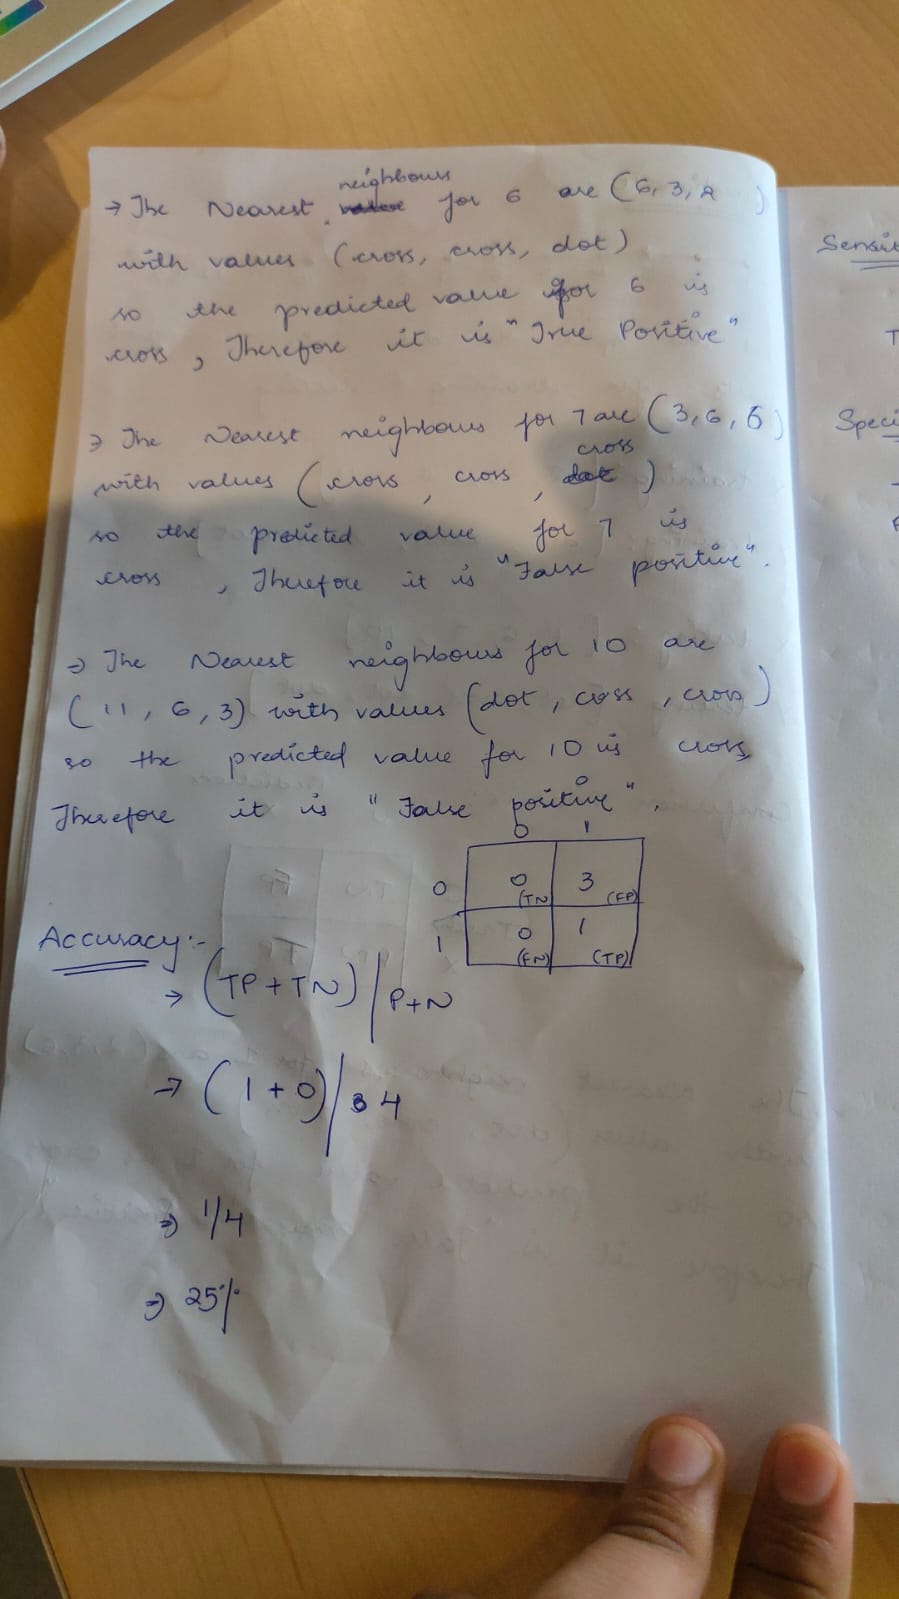 → The Nearest neighbours for 6 are (6, 3, 2 )
with values (cross, cross, dot)
so the predicted value for 6 is
cross, Therefore it is "True Positive"
→ The Nearest neighbours for 7 are (3, 6, 6)
cross
with values (cross, cross, dot)
so the predicted value for 7 is
cross, Therefore it is "False positive".
→ The Nearest neighbours for 10 are
(11, 6, 3) with values (dot, cross, cross)
so the predicted value for 10 is cross,
Therefore it is "False positive".
0 1
0 0 (TN) 3 (FP)
1 0 (FN) 1 (TP)
Accuracy:-
→ (TP + TN) / P+N
→ (1 + 0) / 4
⇒ 1/4
⇒ 25%
Sensit
T
Speci